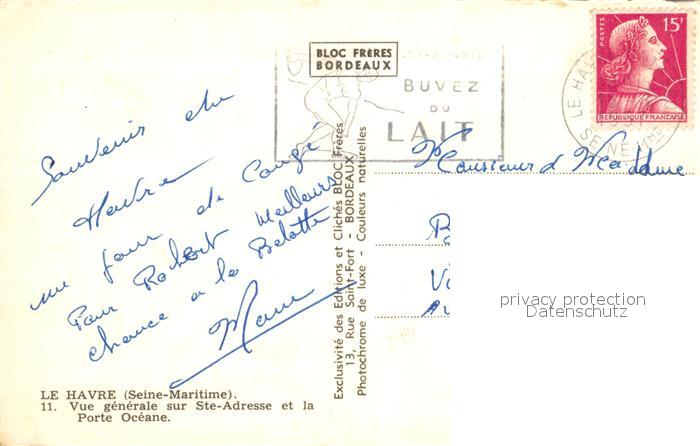 BLOC FRÈRES
BORDEAUX
BUVEZ
DU
LAIT
POSTES
15F
REPUBLIQUE FRANÇAISE
LE HA
SEINE-MME
Souvenir du
Havre
un jour de Congé
Pour Robert Meilleurs
chance a la Belotte
Monsieur et Madame
Exclusivité des Editions et Clichés BLOC Frères
13, Rue Saint-Fort - BORDEAUX
Photochrome de luxe - Couleurs naturelles
privacy protection
Datenschutz
LE HAVRE (Seine-Maritime).
11. Vue générale sur Ste-Adresse et la
Porte Océane.